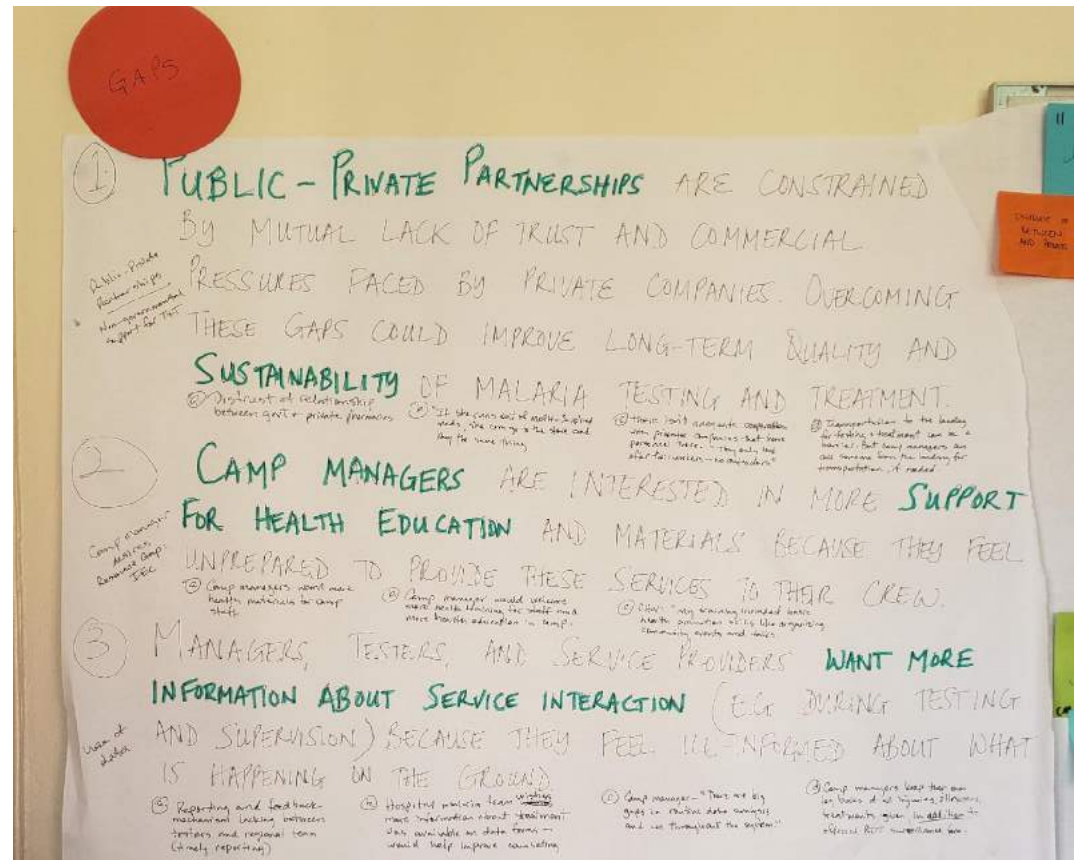 GAPS
1.
PUBLIC-PRIVATE PARTNERSHIPS ARE CONSTRAINED
BY MUTUAL LACK OF TRUST AND COMMERCIAL
PRESSURES FACED BY PRIVATE COMPANIES. OVERCOMING
THESE GAPS COULD IMPROVE LONG-TERM QUALITY AND
SUSTAINABILITY OF MALARIA TESTING AND TREATMENT.
Public-Private
Partnerships
Non-governmental
support for
Distrust of relationship
between gov't + private pharmacies
the store and
buy the same thing
there isn't adequate cooperation
with private companies that have
personnel there. "They only
Transportation to the landing
for testing + treatment can be a
barrier. But camp managers
call someone from the landing for
transportation, if needed
2
CAMP MANAGERS ARE INTERESTED IN MORE SUPPORT
FOR HEALTH EDUCATION AND MATERIALS BECAUSE THEY FEEL
UNPREPARED TO PROVIDE THESE SERVICES TO THEIR CREW.
Camp manager
IEC
Camp managers want more
health materials for camp
staff
Camp manager would welcome
more health training for staff and
more health education in camp.
"my training included basic
health promotion skills like organizing
community events and talks
3
MANAGERS, TESTERS, AND SERVICE PROVIDERS WANT MORE
INFORMATION ABOUT SERVICE INTERACTION (E.G DURING TESTING
AND SUPERVISION) BECAUSE THEY FEEL ILL-INFORMED ABOUT WHAT
IS HAPPENING ON THE GROUND
Use of
data
Reporting and feedback
mechanism lacking between
testers and regional team
(timely reporting)
Hospital malaria team wishes
more information about treatment
was available on data forms –
would help improve counseling
Camp manager – "There are big
gaps in routine data
and use throughout the system."
Camp managers keep their own
log books of injuries, illnesses,
treatments given in addition to
official surveillance
11
BETWEEN
AND PRIVATE